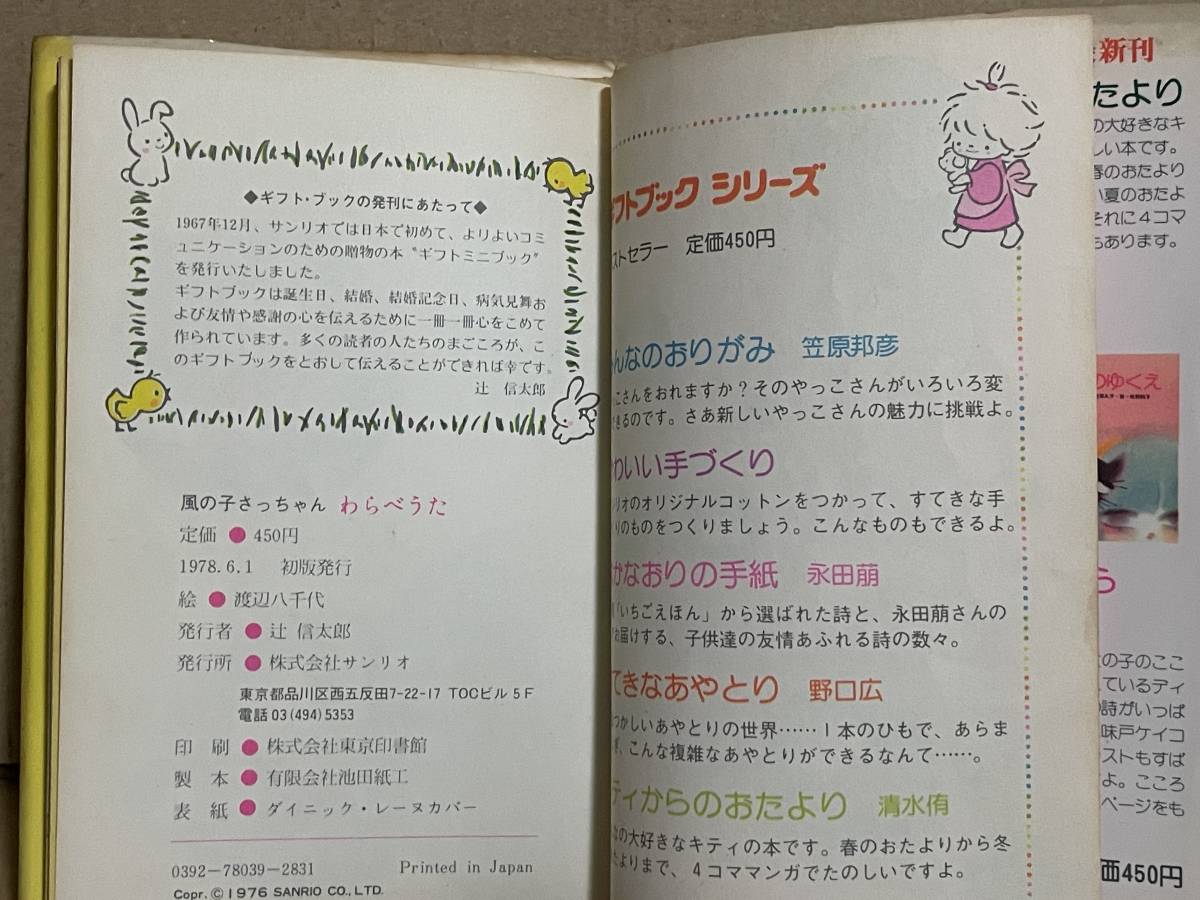 ◆ギフト・ブックの発刊にあたって◆
1967年12月、サンリオでは日本で初めて、よりよいコミ
ュニケーションのための贈物の本〝ギフトミニブック〟
を発行いたしました。
ギフトブックは誕生日、結婚、結婚記念日、病気見舞お
よび友情や感謝の心を伝えるために一冊一冊心をこめて
作られています。多くの読者の人たちのまごころが、こ
のギフトブックをとおして伝えることができれば幸です。
辻 信太郎
風の子さっちゃん わらべうた
定価 ● 450円
1978.6.1 初版発行
絵 ● 渡辺八千代
発行者 ● 辻 信太郎
発行所 ● 株式会社サンリオ
東京都品川区西五反田7-22-17 TOCビル5F
電話03(494)5353
印 刷 ● 株式会社東京印書館
製 本 ● 有限会社池田紙工
表 紙 ● ダイニック・レーヌカバー
0392-78039-2831 Printed in Japan
Copr. © 1976 SANRIO CO., LTD.
フトブック シリーズ
ストセラー 定価450円
んなのおりがみ 笠原邦彦
こさんをおれますか？そのやっこさんがいろいろ変
できるのです。さあ新しいやっこさんの魅力に挑戦よ。
わいい手づくり
リオのオリジナルコットンをつかって、すてきな手
りのものをつくりましょう。こんなものもできるよ。
かなおりの手紙 永田萠
「いちごえほん」から選ばれた詩と、永田萠さんの
お届けする、子供達の友情あふれる詩の数々。
てきなあやとり 野口広
つかしいあやとりの世界……1本のひもで、あらま
、こんな複雑なあやとりができるなんて……。
ティからのおたより 清水侑
なの大好きなキティの本です。春のおたよりから冬
たよりまで、4コママンガでたのしいですよ。
新刊
たより
の大好きなキ
しい本です。
春のおたより
い夏のおたよ
それに4コマ
もあります。
のゆくえ
ら
の子のここ
ているディ
詩がいっぱ
味戸ケイコ
ストもすば
よ。こころ
ページをも
価450円